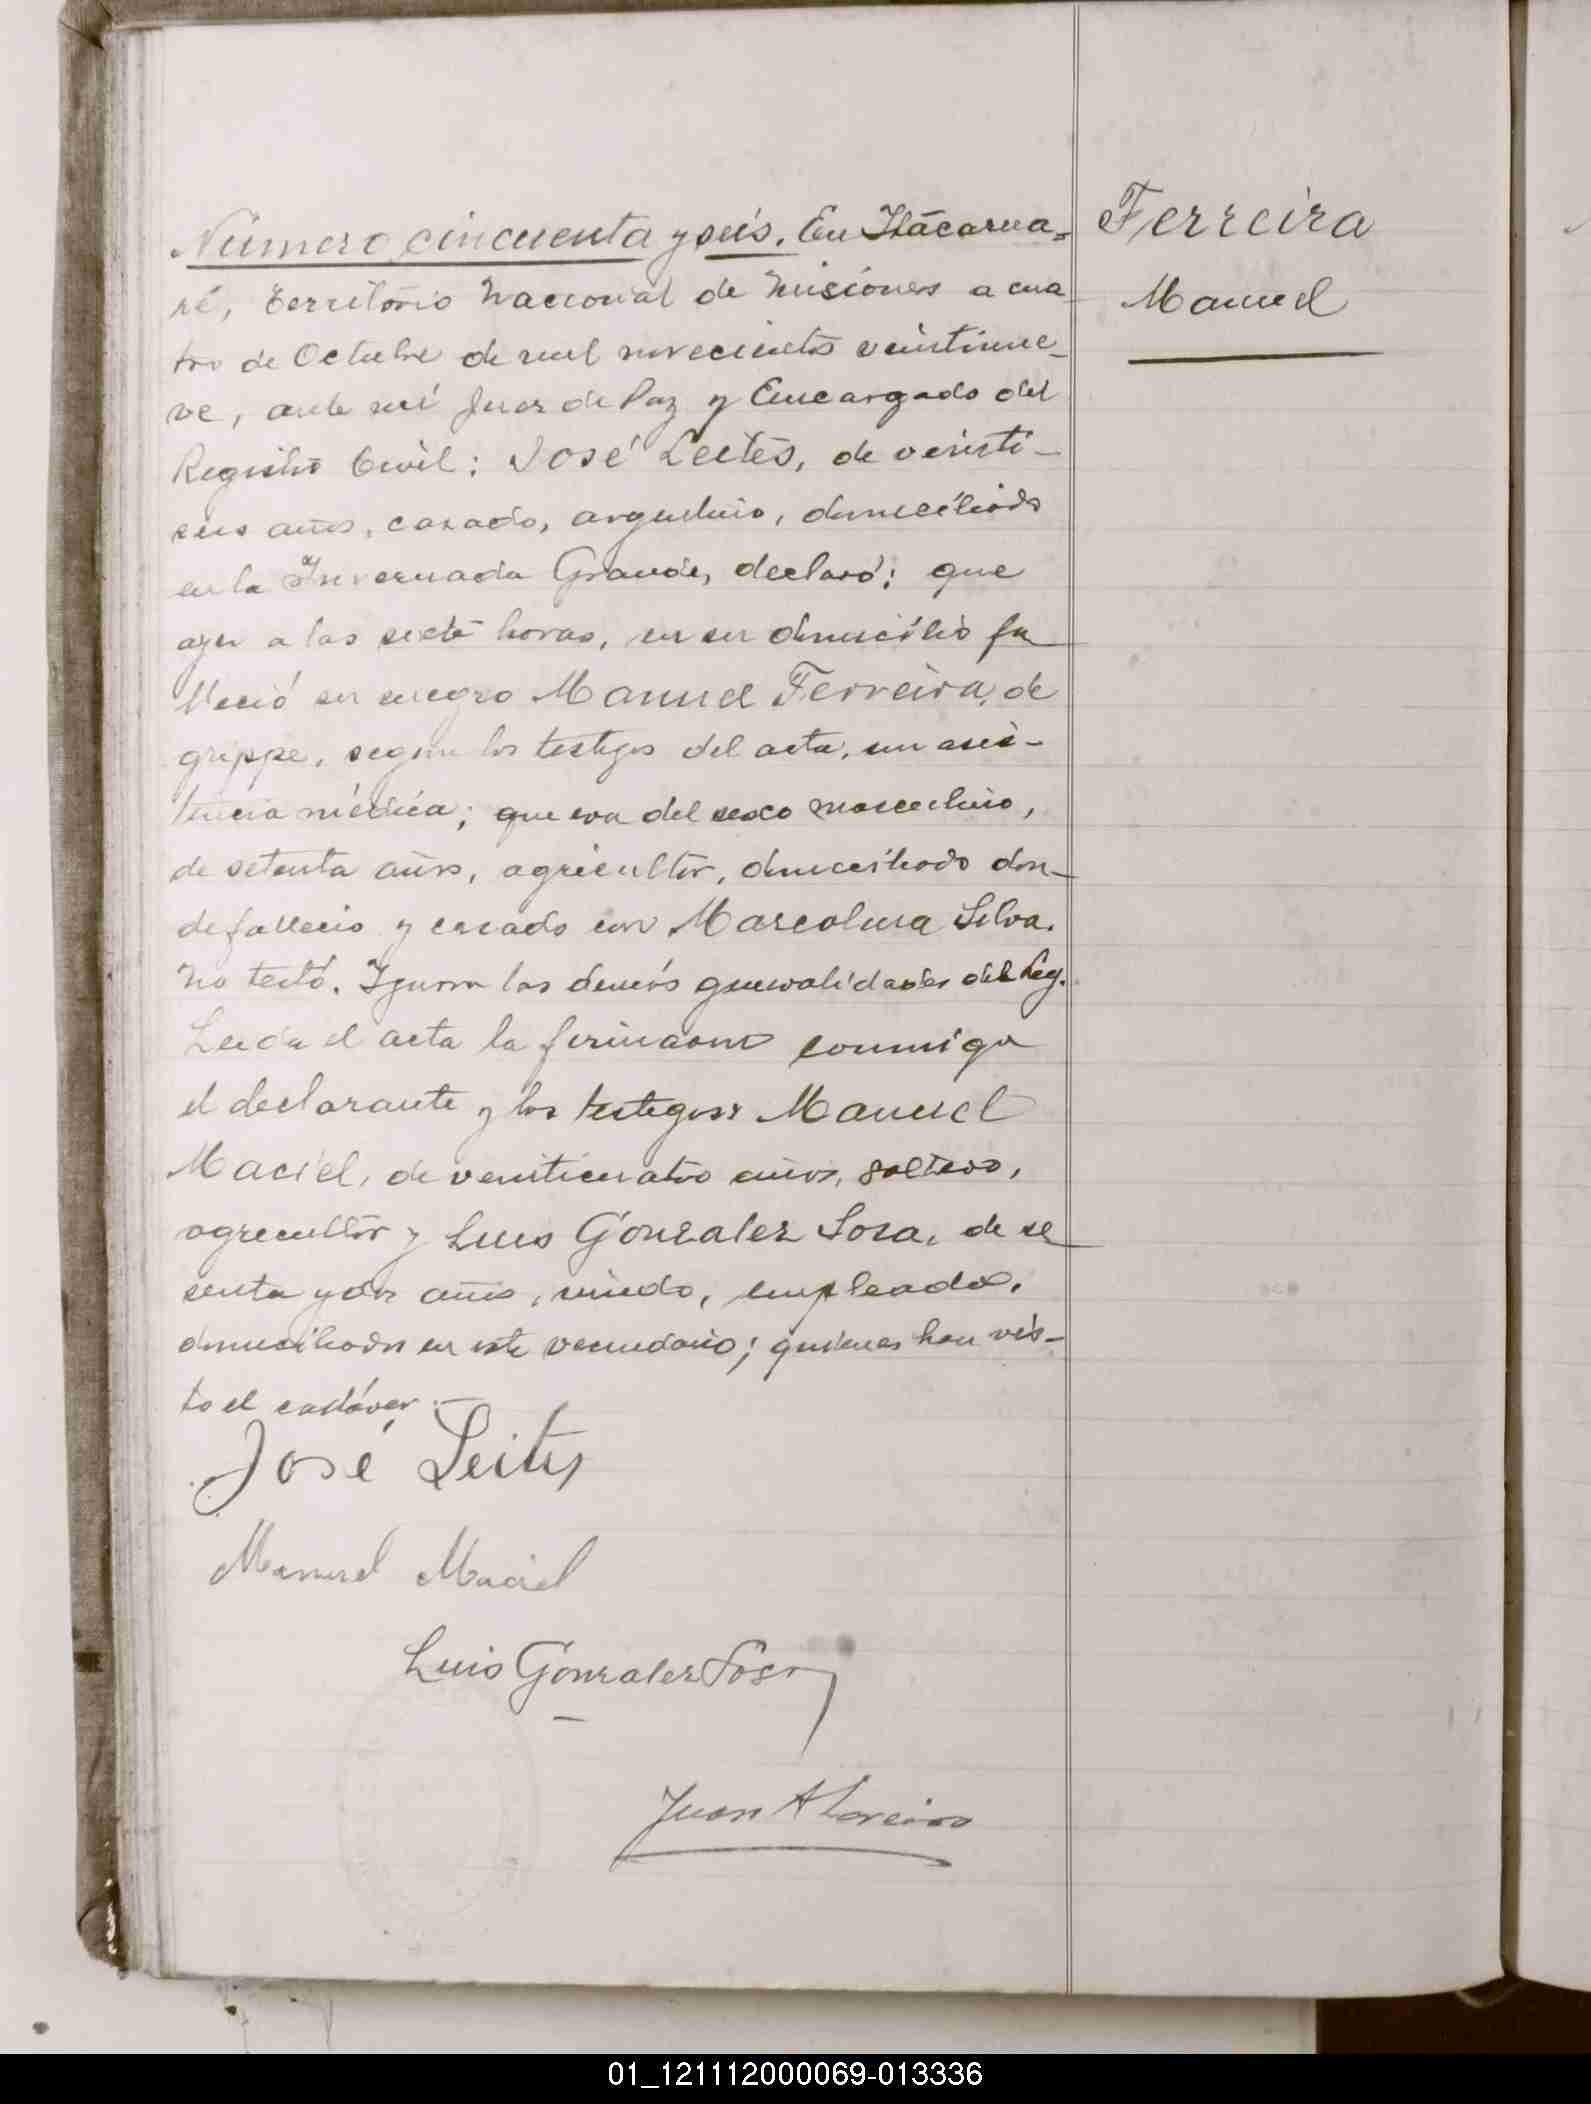 Número cincuenta y seis. En Itacarua=
ré, territorio nacional de Misiones a cua
tro de Octubre de mil novecientos veintinue_
ve, ante mí Juez de Paz y Encargado del
Registro Civil: José Leites, de veinti-
seis años, casado, argentino, domiciliado
en la Invernada Grande, declaró: que
ayer a las siete horas, en su domicilio fa
lleció su suegro Manuel Ferreira, de
grippe, según los testigos del acta, sin asis-
tencia médica; que era del sexo masculino,
de setenta años, agricultor, domiciliado don-
de falleció y casado con Marcolina Silva.
No testó. Ignora las demás generalidades del Ley.
Leida el acta la firmaron conmigo
el declarante y los testigos: Manuel
Maciel, de veinticuatro años, soltero,
agricultor y Luis Gonzalez Sosa, de se
senta y dos años, viudo, empleado,
domiciliados en este vecindario; quienes han vis-
to el cadáver.-
José Leites
Manuel Maciel
Luis Gonzalez Sosa
Juan A
Ferreira
Manuel
01_121112000069-013336